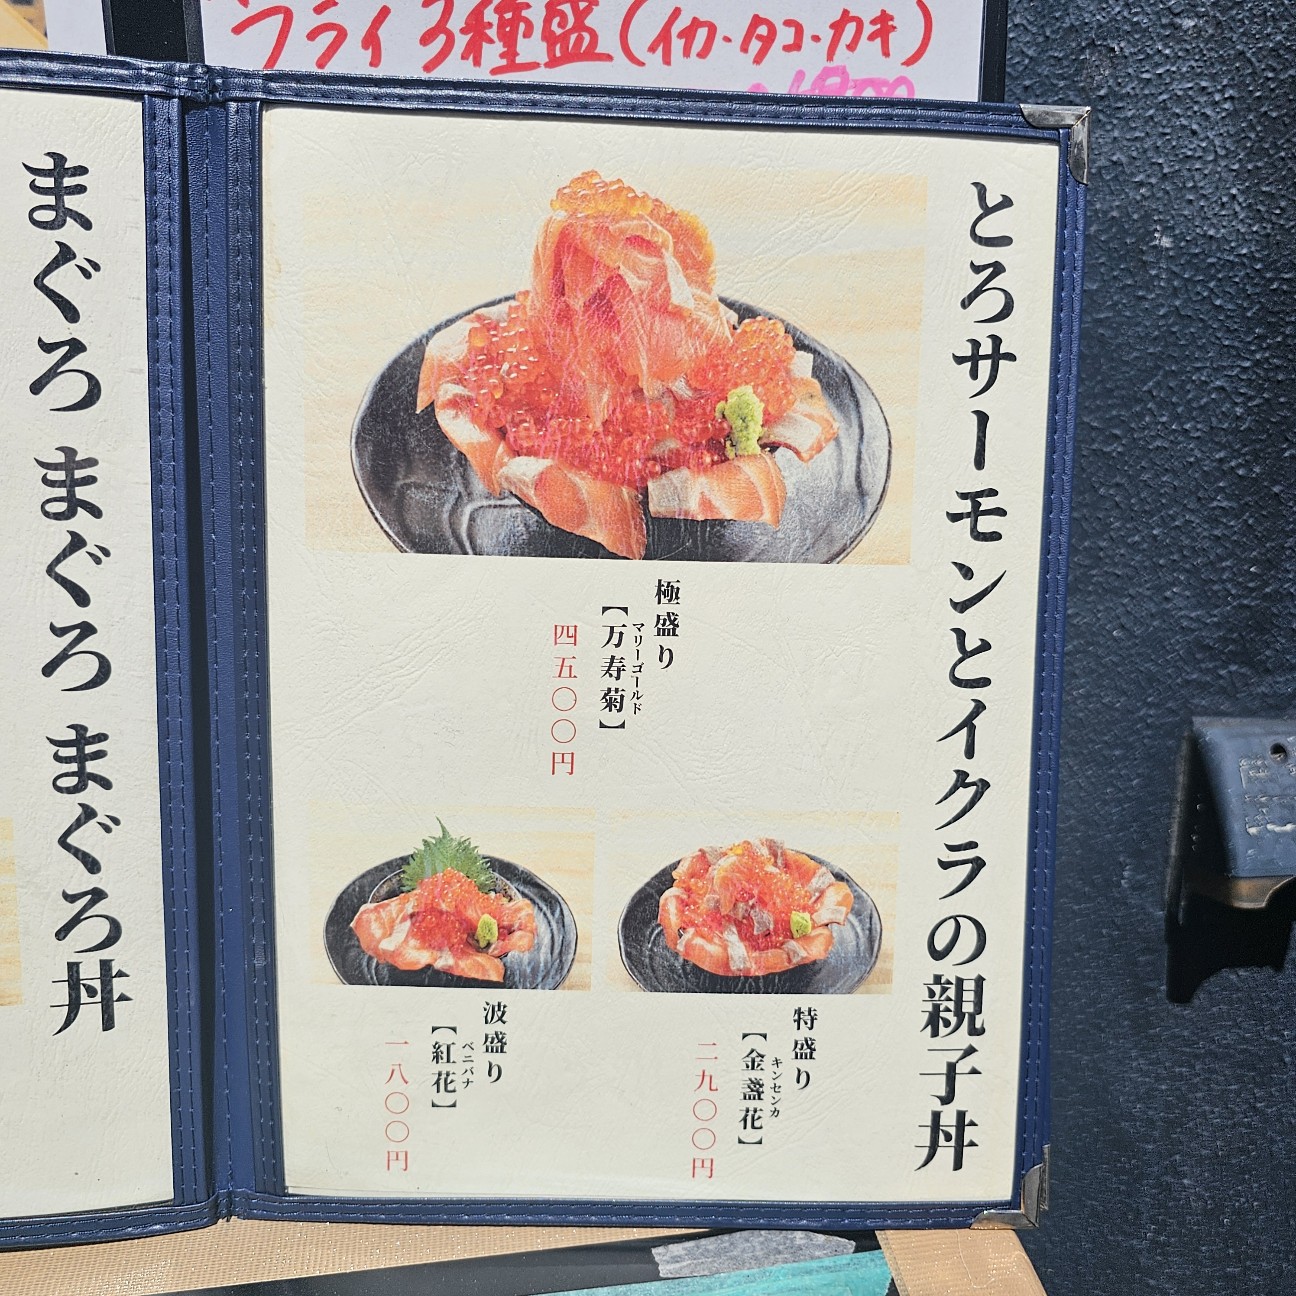 フライ3種盛(イカ・タコ・カキ)
とろサーモンとイクラの親子丼
極盛り
マリーゴールド
【万寿菊】
四五〇〇円
特盛り
キンセンカ
【金盞花】
二九〇〇円
波盛り
ベニバナ
【紅花】
一八〇〇円
まぐろ まぐろ まぐろ丼